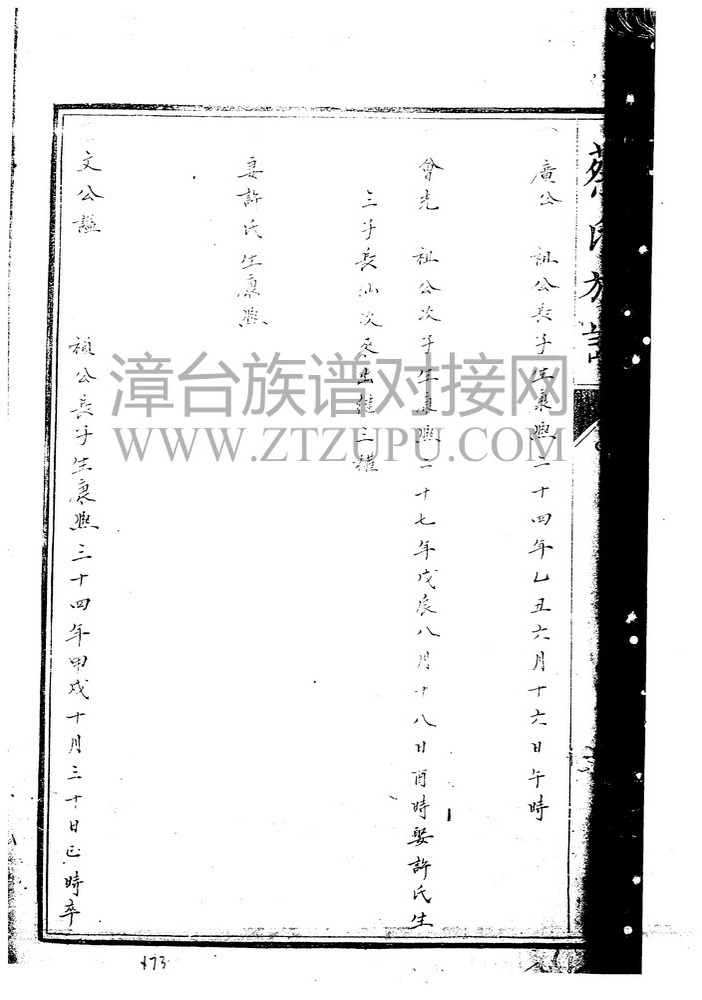 蔡氏族譜
廣公 祖公長子生康熙二十四年乙丑六月十六日午時
會光 祖公次子生康熙二十七年戊辰八月十八日酉時娶許氏生
三子長汕次 出繼三權
妻許氏生康熙
文公諡 禎公長子生康熙三十四年甲戌十月三十日巳時卒
漳台族谱对接网
WWW.ZTZUPU.COM
173